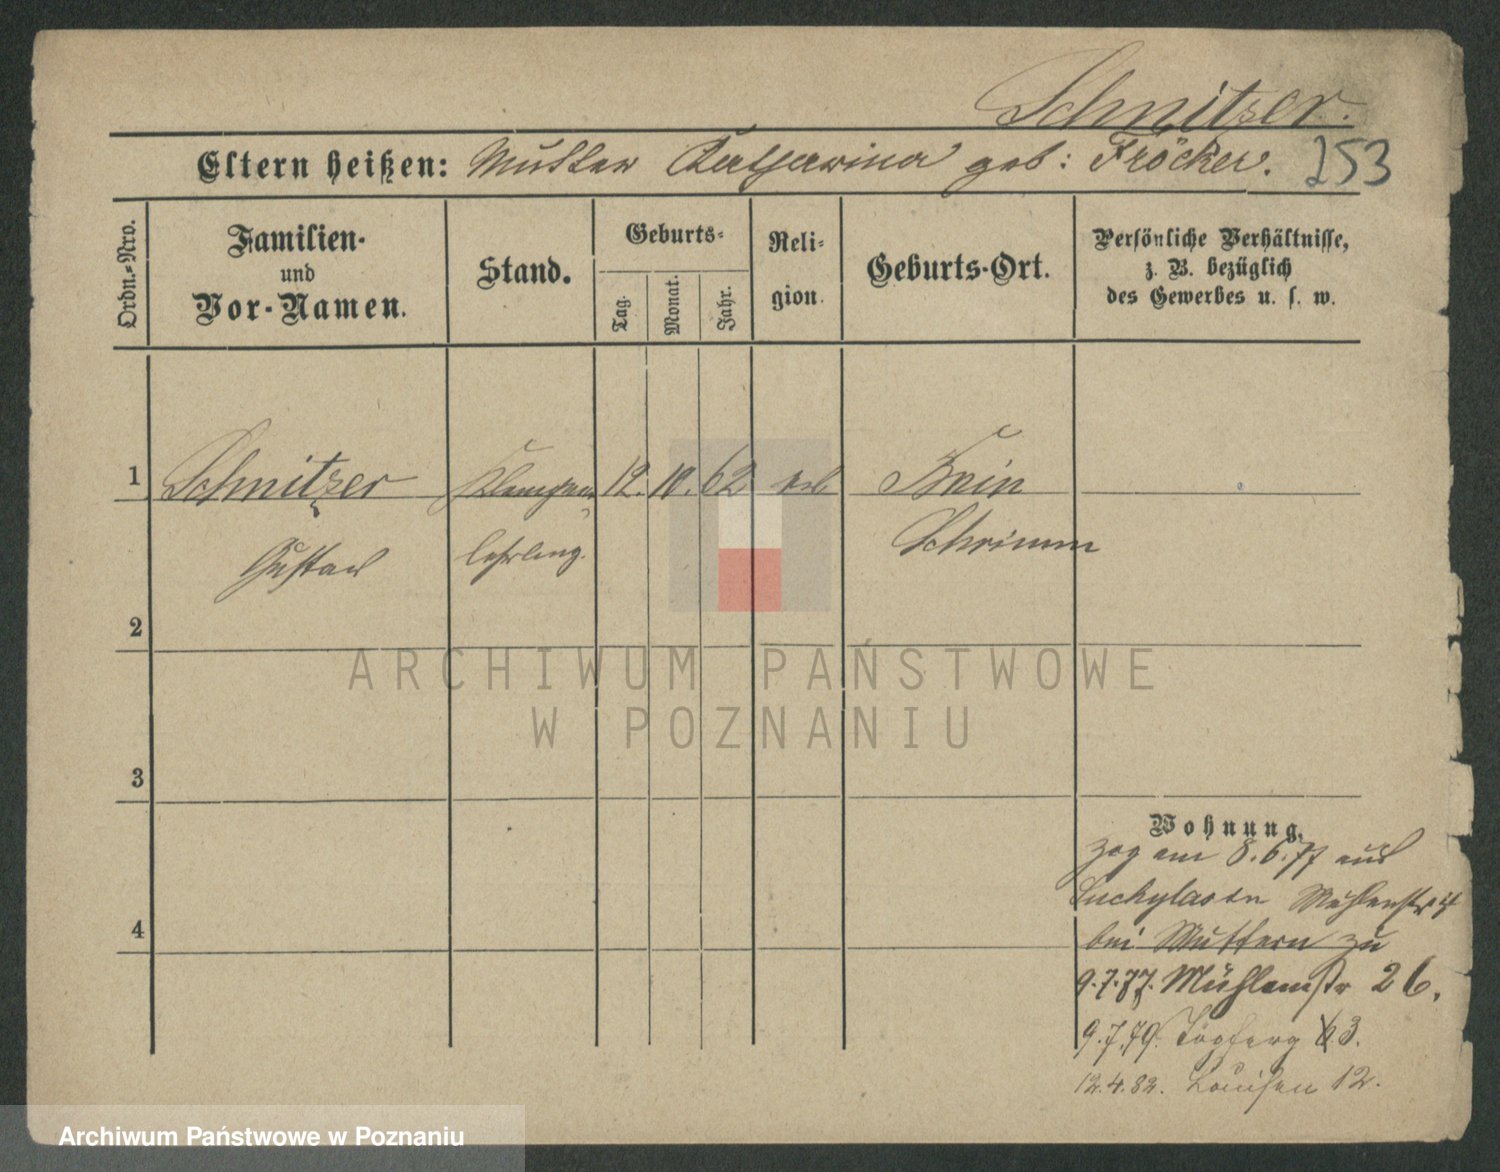 Schnitzer.
Eltern heißen: Mutter Katharina geb: Fröcker.
253
Ordn.-Nro.
Familien-
und
Vor-Namen.
Stand.
Geburts-
Tag.
Monat.
Jahr.
Reli-
gion.
Geburts-Ort.
Persönliche Verhältnisse,
z. B. bezüglich
des Gewerbes u. s. w.
1 Schnitzer Klempner 12. 10. 62 Bnin
Gustav lehrling. Schrimm
2
ARCHIWUM PAŃSTWOWE
W POZNANIU
3
Wohnung.
zog am 8.6.77 aus
Mühlenstr
4
bei Muttern zu
9.7.77. Mühlenstr 26.
9.7.79. 3.
12.4.82. Louisen 12.
Archiwum Państwowe w Poznaniu